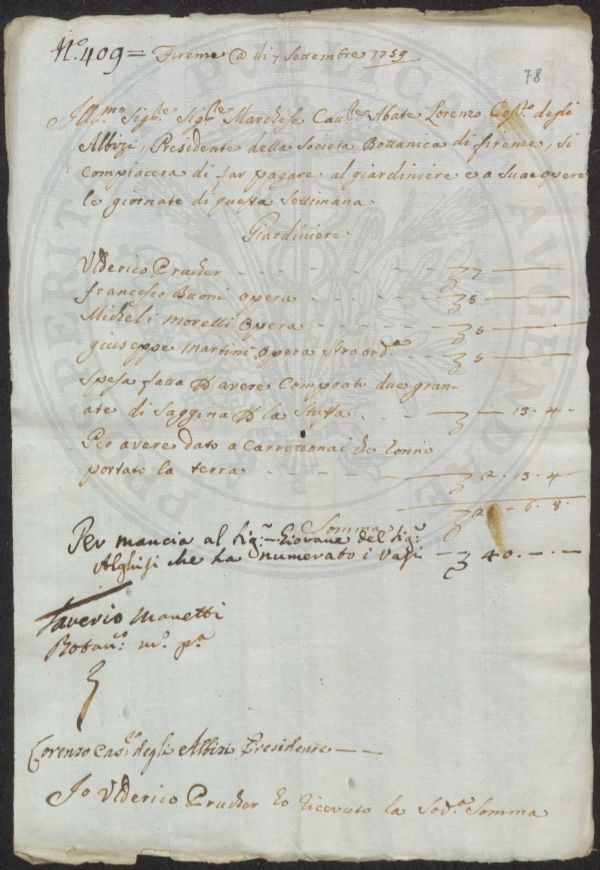 N.º 409 = Firenze @ di 7 Settembre 1759
78
Ill.mo Sig.re Sig.re Marchese Cau.re Abate Lorenzo degli
Albizi, Presidente della Societa Bottanica di firenze, si
compiacera di far pagare al giardiniere e a sua opere
le giornate di questa Settimana
Giardiniere
Ulderico Prucher - - - - 7 —
francesco Buoni opera - - - - 5 —
Micheli Morelli Opera - - - - 5 —
giuseppe Martini Opera straord.a - - 5 —
Spesa fatta P avere Comprate due gran-
ate di Saggina P la Stuffa - - — 13. 4 -
Per avere dato a Carrettonai che Conno
portato la terra - - - - 2. 13. 4 -
Somma 6. 8.
Per mancia al Sig.r Giovane del Sig.r
Alghisi che ha numerato i Vasi — 40. — . —
Saverio Manetti
Botan.co m.o p.a
Lorenzo Cas.º degli Albizi Presidente — —
Io Ulderico Prucher ho ricevuto la Sod.a Somma
PROSPERITATI PVBLICAE AVGENDAE